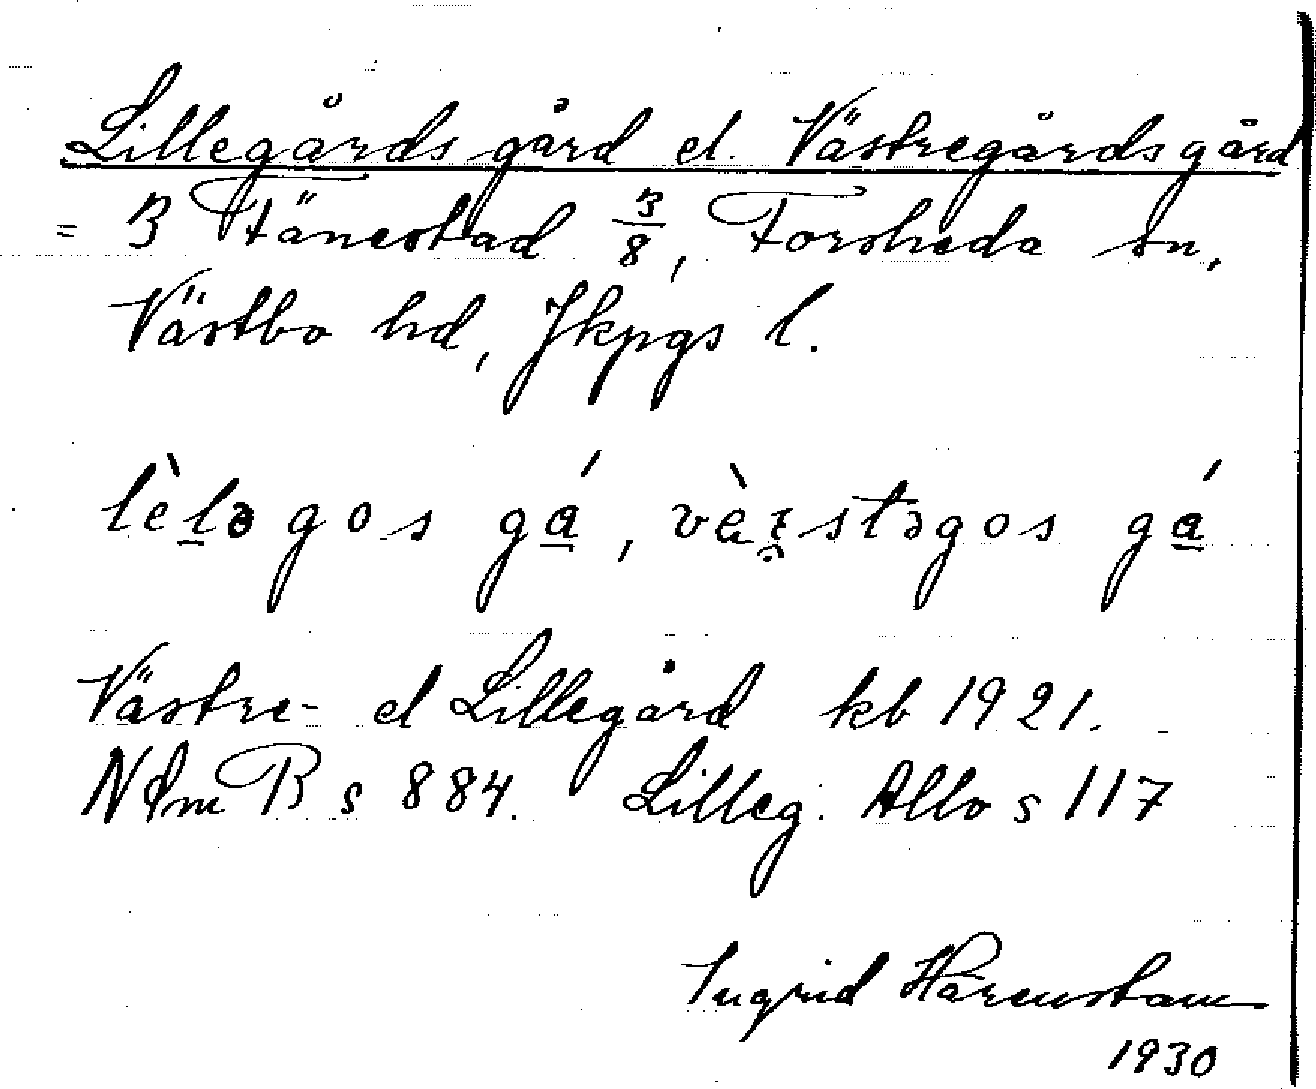 Lillegårdsgård el. Västregårdsgård
= 3 Fänestad 3/8, Forsheda sn,
Västbo hd, Jkpgs l.
lèlǝgos gá, vèɛstǝgos gá
Västre- el Lillegård kb 1921.
NSm B s 884. Lilleg. Allbo s 117
Ingrid Härenstam
1930